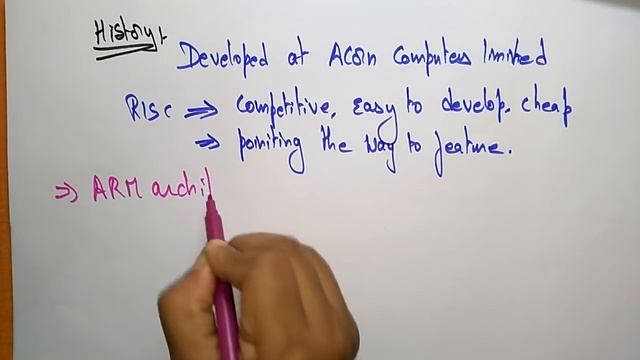 History:
Developed at Acorn Computers limited
RISC ⇒ Competitive, easy to develop, cheap
⇒ pointing the way to feature.
⇒ ARM archi